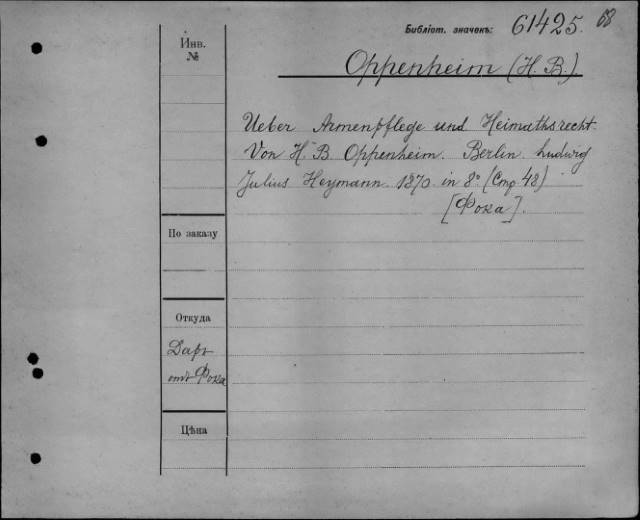 Библіот. значекъ: 61425. 68
Инв. №
Oppenheim (H. B.)
Ueber Armenpflege und Heimathsrecht.
Von H. B. Oppenheim. Berlin. Ludwig
Julius Heymann. 1870. in 8° (Стр. 48)
[Фока].
По заказу
Откуда
Даръ
отъ Фока
Цѣна